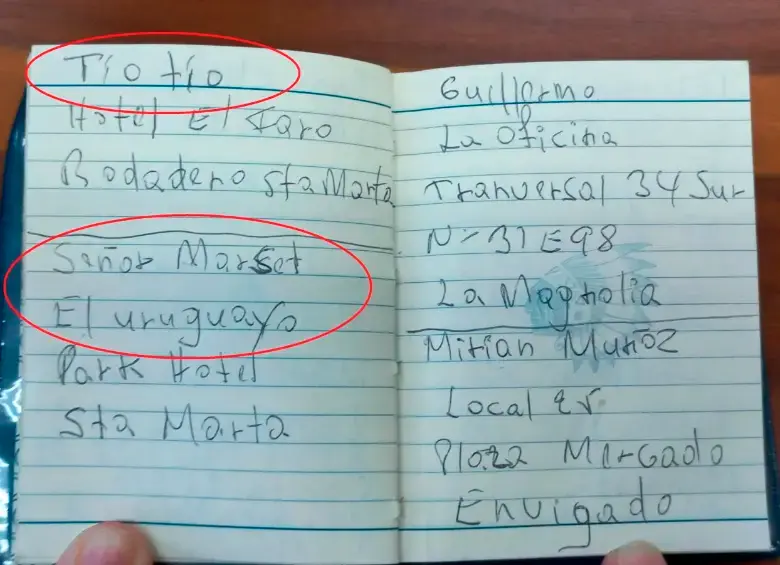 Tío tío
Hotel El Faro
Rodadero Sta Marta
Señor Marset
El uruguayo
Park Hotel
Sta Marta
Guillermo
La Oficina
Tranversal 34 Sur
N- 31 E98
La Magnolia
Mirian Muñoz
Local
Plaza Mercado
Envigado